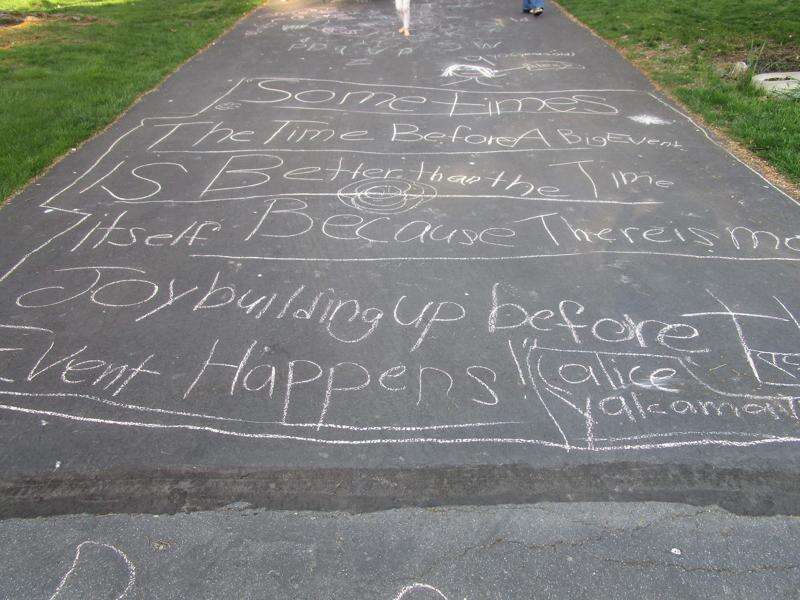 Some times
The Time Before A Big Event
IS Better than the Time
itself Because There is mo
Joy building up before
Event Happens!
alice